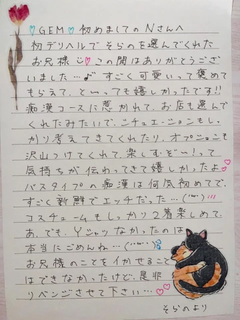 ♡GEM♡初めましてのNさんへ
初デリヘルでそらのを選んでくれた
お兄様 この間はありがとうござ
いました…♪ すごく可愛いって褒めて
もらえて、と〜っても嬉しかったです!!
痴漢コースに惹かれて、お店も選んで
くれたみたいで、シチュエーションもし
っかり考えてきてくれたり、オプションも
沢山つけてくれて、楽しむぞー!って
気持ちが伝わってきて嬉しかったよ
バスタイプの痴漢は何気初めてで、
すごく新鮮でエッチだった…
コスチュームもしっかり2着楽しめて。
あ、でも、Yシャツなかったのは
本当にごめんね…
お兄様のことをイかせること
はできなかったけど、是非
リベンジさせて下さい…♡♡
そらのより